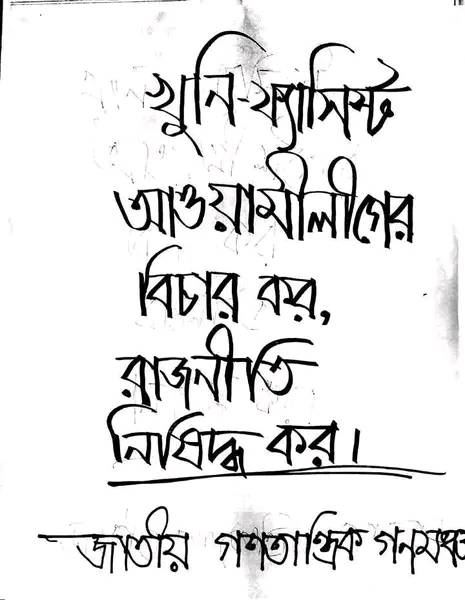 খুনি-ফ্যাসিস্ট
আওয়ামীলীগের
বিচার কর,
রাজনীতি
নিষিদ্ধ কর।
জাতীয় গণতান্ত্রিক গনমঞ্চ